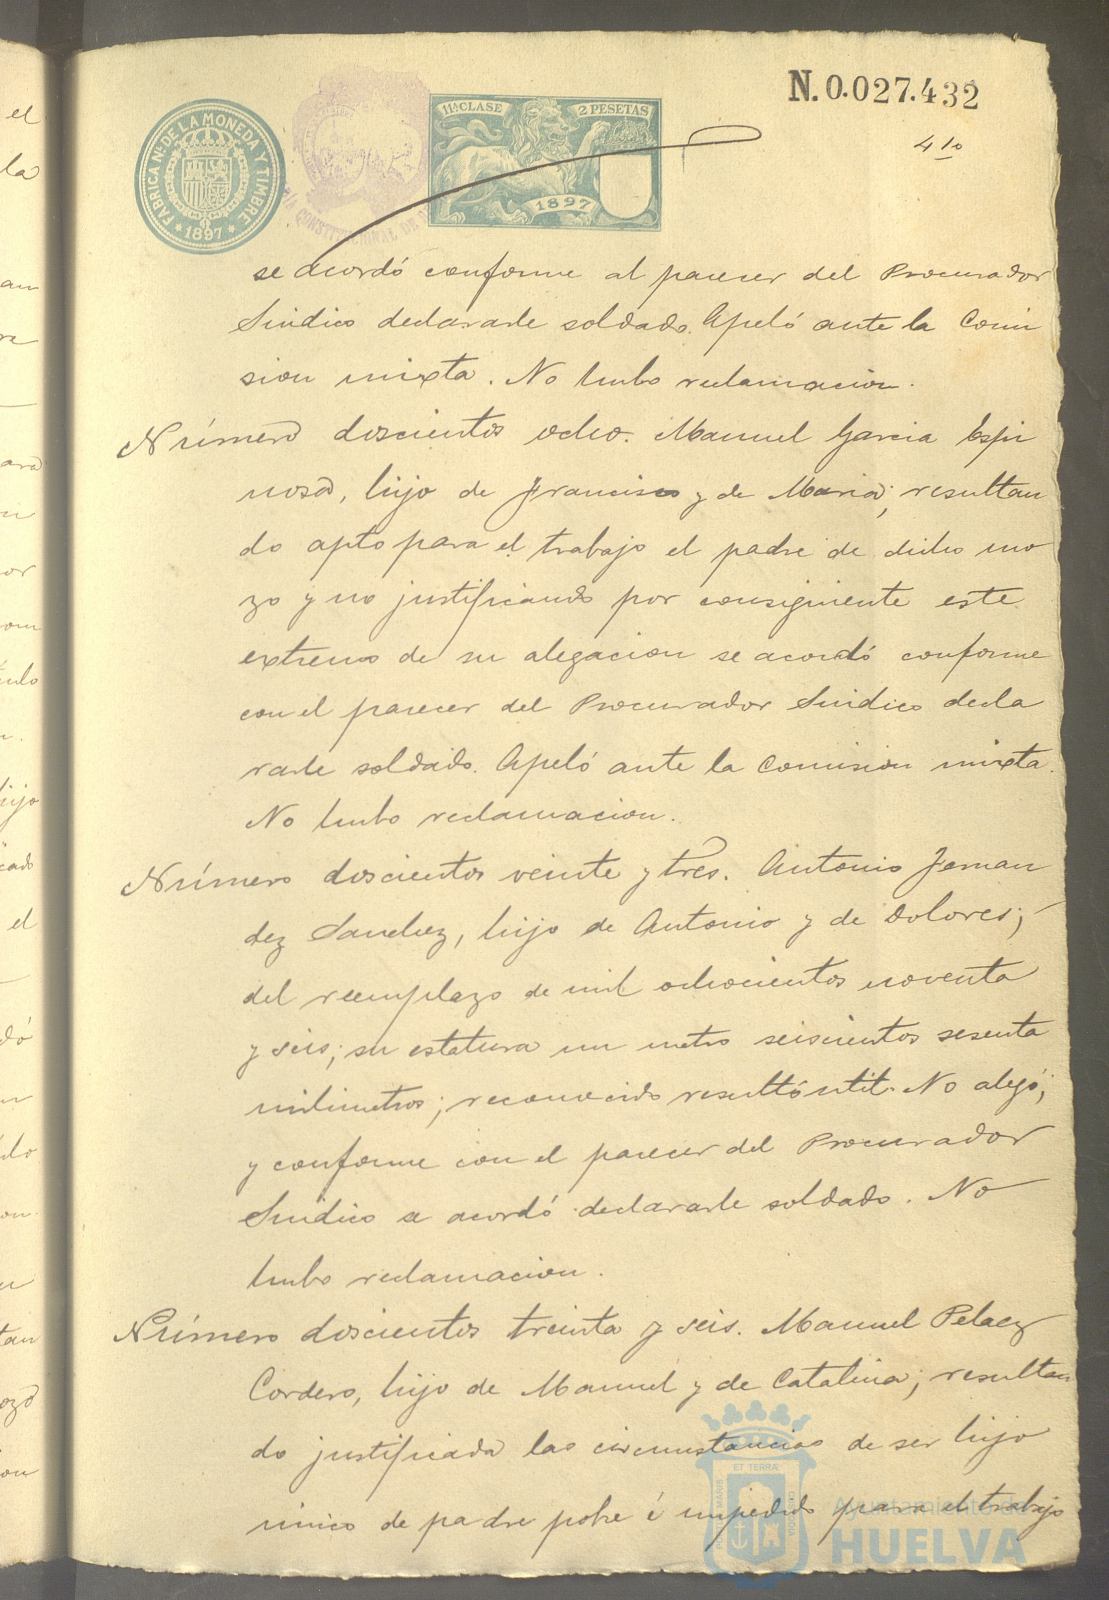 N.0.027.432
41o
FABRICA Nal. DE LA MONEDA Y TIMBRE
* 1897 *
11ª CLASE
2 PESETAS
1897
CONSTITUCIONAL DE
se acordó conforme al parecer del Procurador
Sindico declararle soldado. Apeló ante la Comi
sion mixta. No hubo reclamacion.
Número doscientos ocho. Manuel Garcia Espi
nosa, hijo de Francisco y de Maria; resultan
do apto para el trabajo el padre de dicho mo
zo y no justificando por consiguiente este
extremo de su alegacion se acordó conforme
con el parecer del Procurador Sindico decla
rarle soldado. Apeló ante la Comision mixta.
No hubo reclamacion.
Número doscientos veinte y tres. Antonio Fernan
dez Sanchez, hijo de Antonio y de Dolores;
del reemplazo de mil ochocientos noventa
y seis; su estatura un metro seiscientos sesenta
milimetros; reconocido resultó util. No alegó;
y conforme con el parecer del Procurador
Sindico se acordó declararle soldado. No
hubo reclamacion.
Número doscientos treinta y seis. Manuel Pelaez
Cordero, hijo de Manuel y de Catalina; resultan
do justificada las circunstancias de ser hijo
unico de padre pobre é impedido para el trabajo
Ayuntamiento de
HUELVA